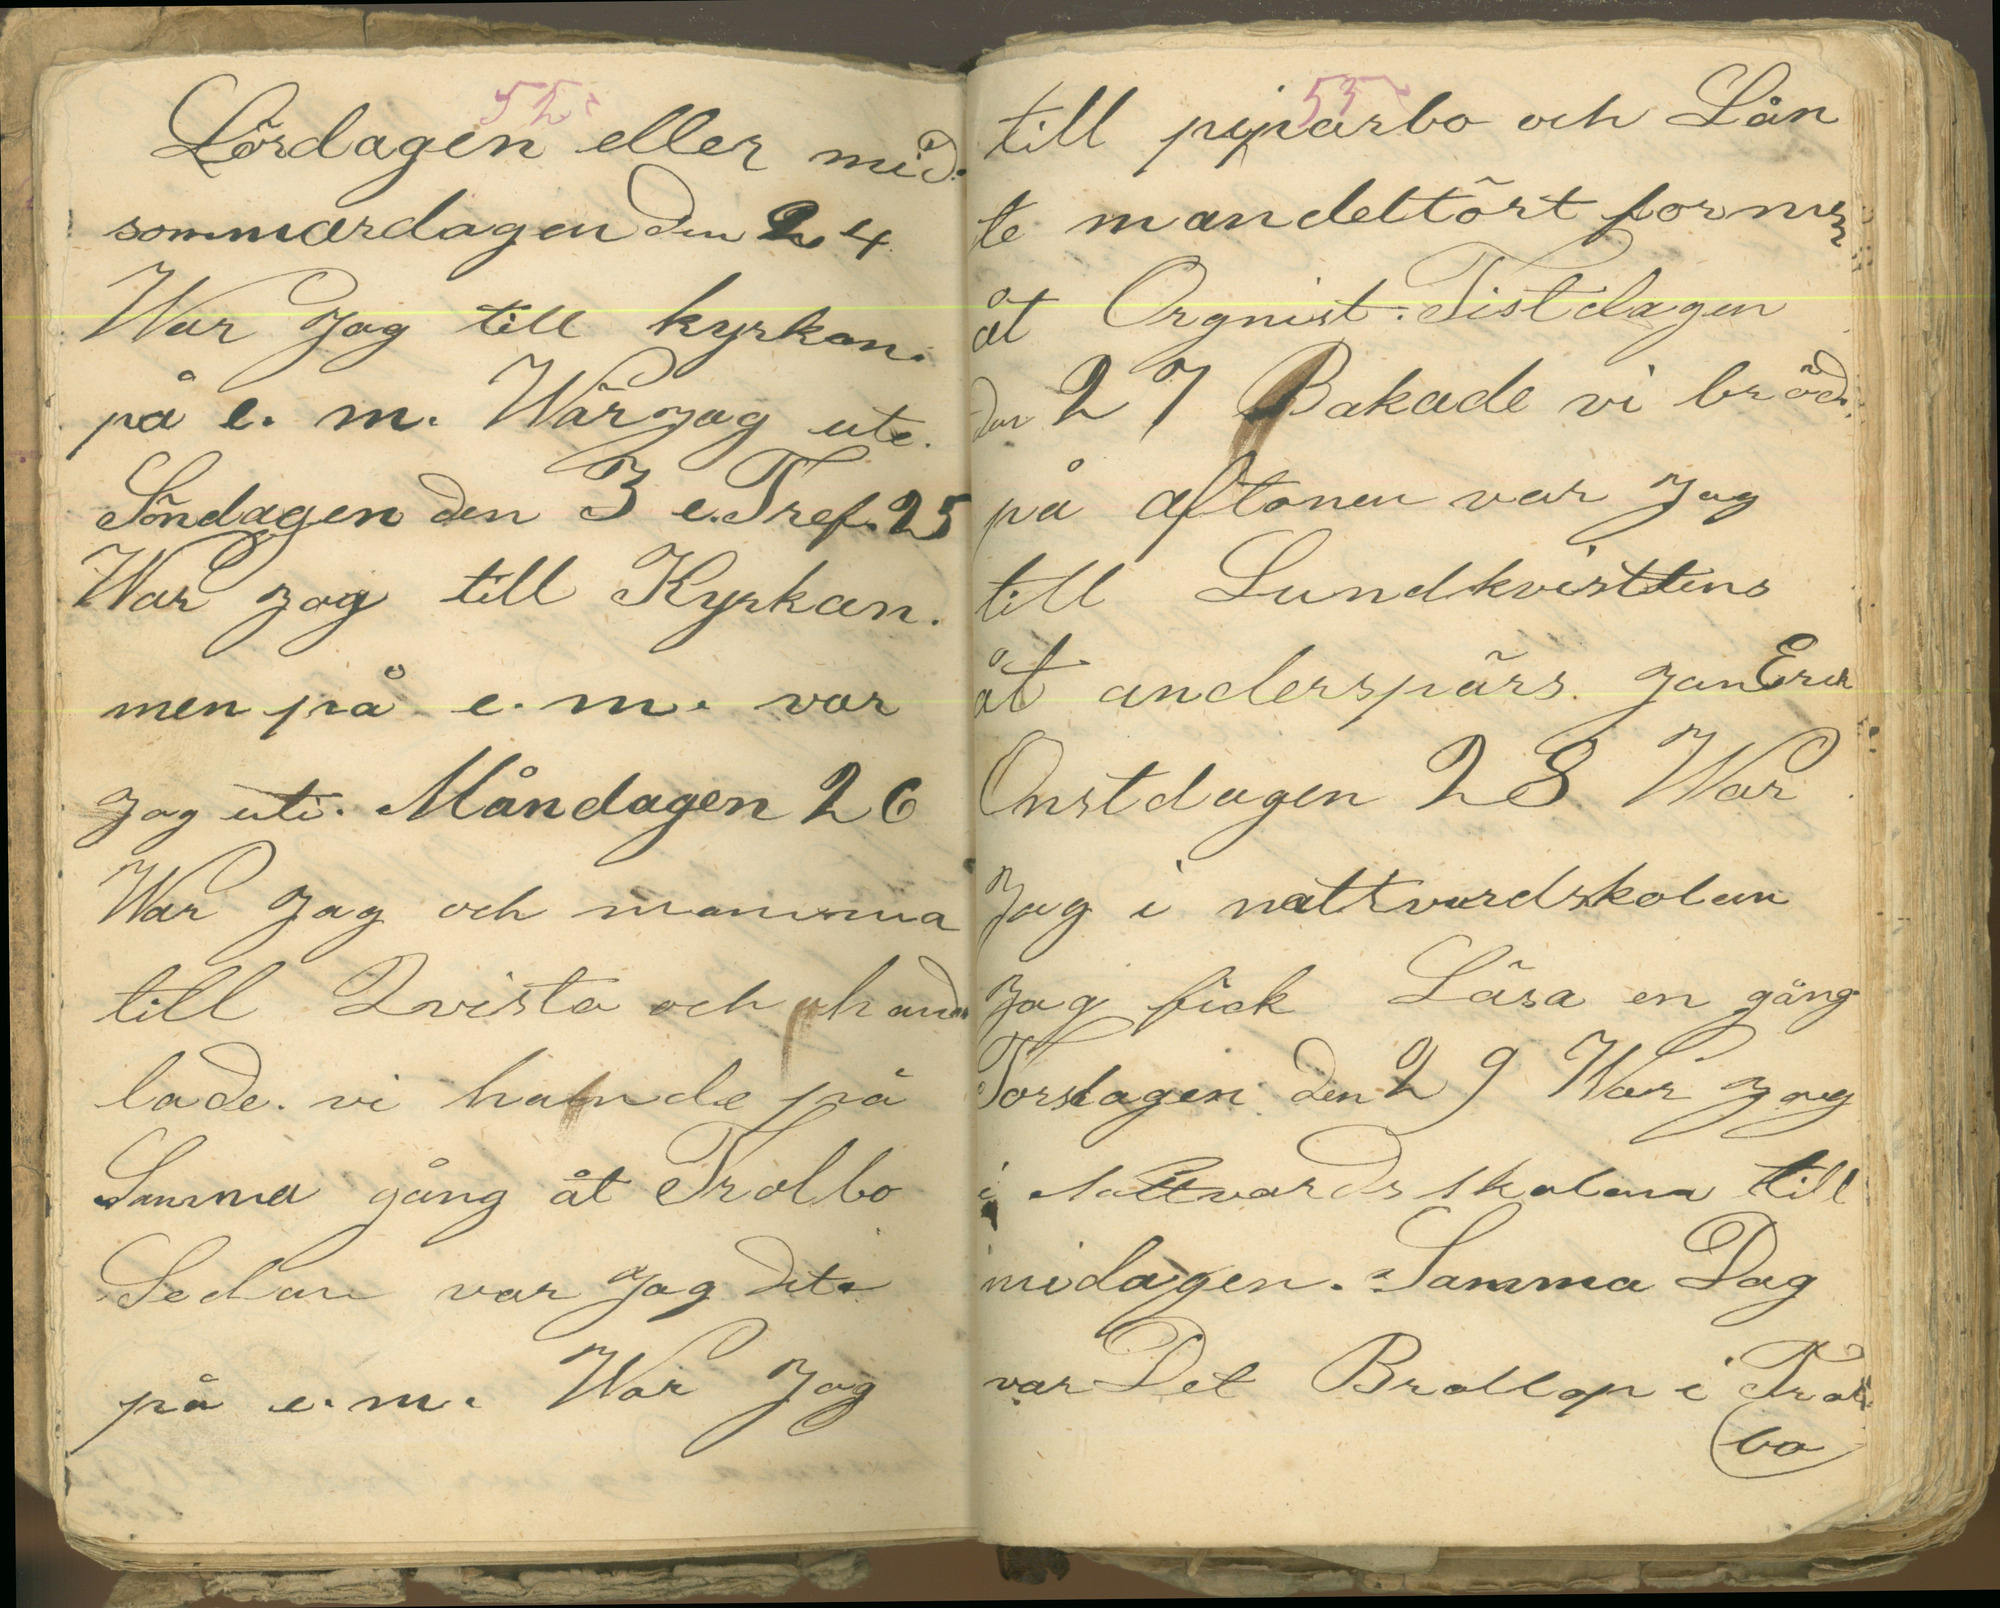 52
Lördagen eller mid-
sommardagen den 24
War Jag till kyrkan.
på e. m. War jag ute.
Söndagen den 3 e. Tref. 25
War jag till Kyrkan.
men på e. m. var
Jag ute. Måndagen 26
War Jag och mamma
till Qvista och hand
lade. vi hande på
Samma gång åt Trolbo
Sedan var Jag dit
på e. m. War Jag
53
till piparbo och Lån
te mandeltört former
åt Orgnist. Tistdagen
den 27 Bakade vi bröd.
på aftonen var Jag
till Lundkvisttens
åt anderspärs. Jan Erik
Onstdagen 28 War
Jag i nattvardskolan
Jag fick Läsa en gång
Torsdagen den 29 War Jag
i Nattvardsskolan till
midagen. Samma Dag
var Det Brollop i Trol
bo